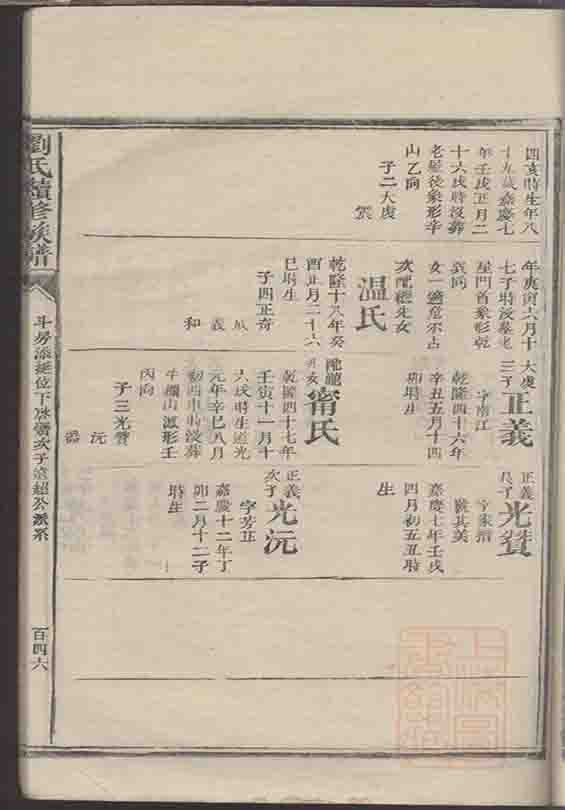 四亥時生年八
十九歲嘉慶七
年壬戌正月二
十六戌時沒葬
老屋後象形辛
山乙向
子二大虞
雲
年庚寅六月十
七子時沒墓老
屋門首象形乾
亥向
女一適危示占
次配德先女
溫氏
乾隆十八年癸
酉正月二十六
巳時生
子四正奇
成
義
和
大虞
三子
正義
字南江
乾隆四十六年
辛丑五月十四
卯時生
配
女
甯氏
乾隆四十七年
壬寅十一月十
六戌時生道光
元年辛巳八月
初四申時沒葬
牛欄山獅形壬
丙向
子三光贊
沅
正義
長子
光贊
字
號其美
嘉慶七年壬戌
四月初五丑時
生
正義
次子
光沅
字芳芷
嘉慶十二年丁
卯二月十二子
時生
劉氏續修族譜
斗房添挺位下冰儒次子遠紹公派系
百四六
上海圖
書館藏